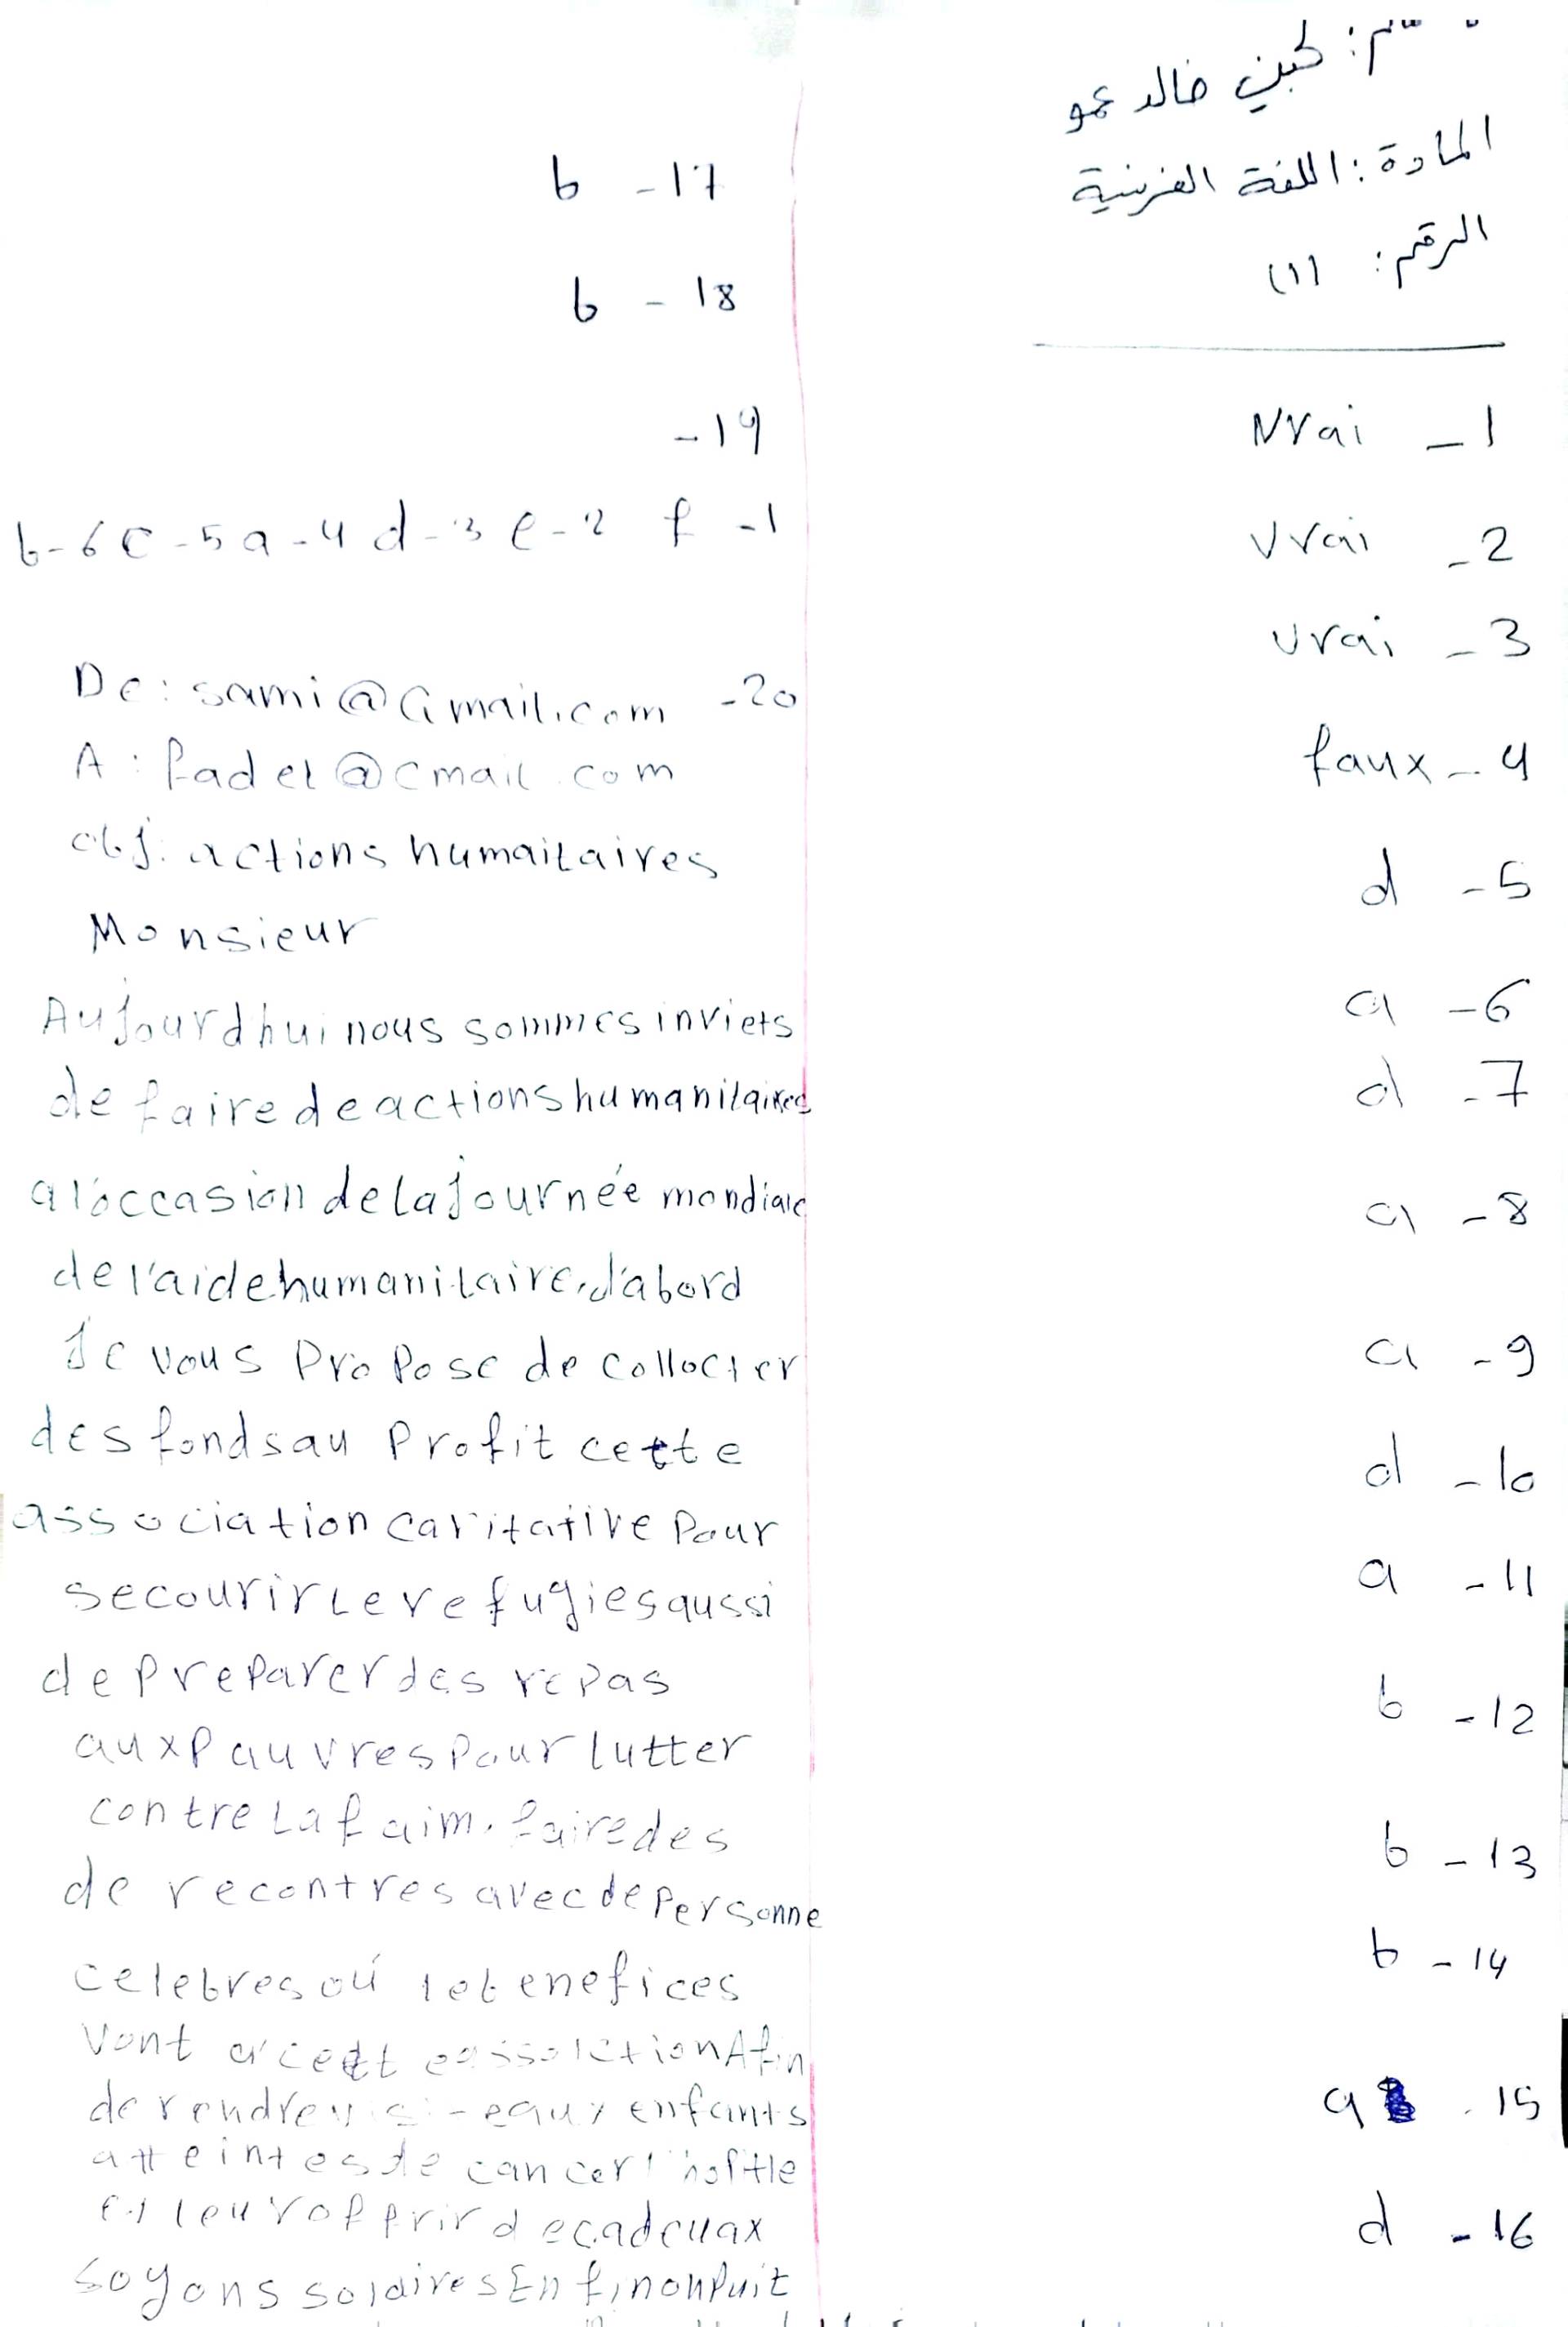 لجين خالد عمو
المادة: اللغة الفرنسية
الرقم: (1)
Vrai - 1
Vrai - 2
vrai - 3
faux - 4
d - 5
a - 6
d - 7
a - 8
a - 9
d - 10
a - 11
b - 12
b - 13
b - 14
a - 15
d - 16
b - 17
b - 18
- 19
b-6 c-5 a-4 d-3 e-2 f-1
De: sami@Gmail.com -20
A: fadel@Cmail.com
obj: actions humaitaires
Monsieur
Aujourdhui nous sommes inviets
de faire de actions humanitaires
a l'occasion de la journée mondiale
de l'aide humanitaire, d'abord
Je vous Propose de collocter
des fonds au Profit cette
association caritative Pour
secourir Le refugies aussi
de PreParer des repas
aux Pauvres Pour lutter
contre La faim. faire des
de recontres avec de Personne
celebres où le benefices
Vont Afin
de enfants
atteintes de cancer
et leur offrir de cadeuax
Soyons soldaires Enfin